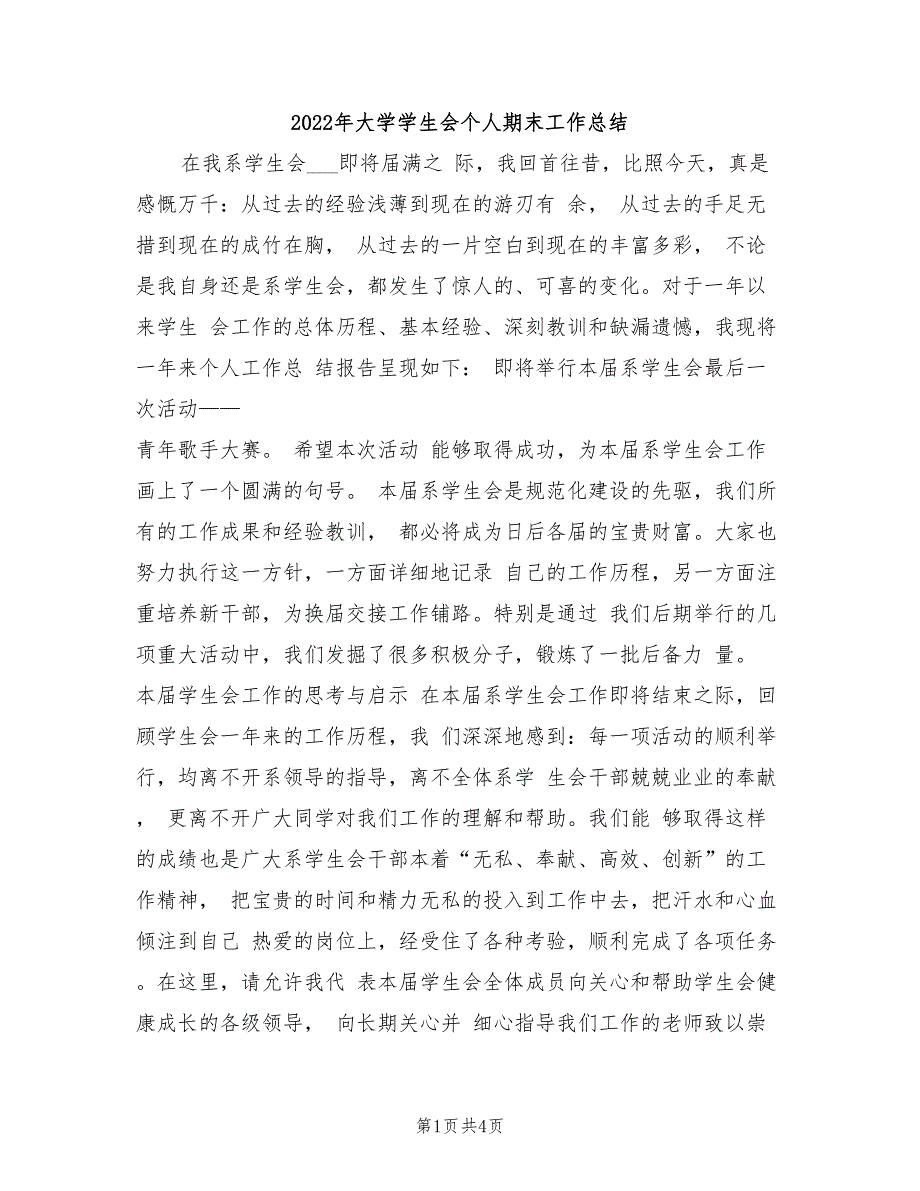 2022年大学学生会个人期末工作总结
在我系学生会___即将届满之 际，我回首往昔，比照今天，真是
感慨万千：从过去的经验浅薄到现在的游刃有 余， 从过去的手足无
措到现在的成竹在胸， 从过去的一片空白到现在的丰富多彩， 不论
是我自身还是系学生会，都发生了惊人的、可喜的变化。对于一年以
来学生 会工作的总体历程、基本经验、深刻教训和缺漏遗憾，我现将
一年来个人工作总 结报告呈现如下： 即将举行本届系学生会最后一
次活动——
青年歌手大赛。 希望本次活动 能够取得成功，为本届系学生会工作
画上了一个圆满的句号。 本届系学生会是规范化建设的先驱，我们所
有的工作成果和经验教训， 都必将成为日后各届的宝贵财富。大家也
努力执行这一方针，一方面详细地记录 自己的工作历程，另一方面注
重培养新干部，为换届交接工作铺路。特别是通过 我们后期举行的几
项重大活动中，我们发掘了很多积极分子，锻炼了一批后备力 量。
本届学生会工作的思考与启示 在本届系学生会工作即将结束之际，回
顾学生会一年来的工作历程，我 们深深地感到：每一项活动的顺利举
行，均离不开系领导的指导，离不全体系学 生会干部兢兢业业的奉献
， 更离不开广大同学对我们工作的理解和帮助。我们能 够取得这样
的成绩也是广大系学生会干部本着“无私、奉献、高效、创新”的工
作精神， 把宝贵的时间和精力无私的投入到工作中去，把汗水和心血
倾注到自己 热爱的岗位上，经受住了各种考验，顺利完成了各项任务
。在这里，请允许我代 表本届学生会全体成员向关心和帮助学生会健
康成长的各级领导， 向长期关心并 细心指导我们工作的老师致以崇
第1页共4页